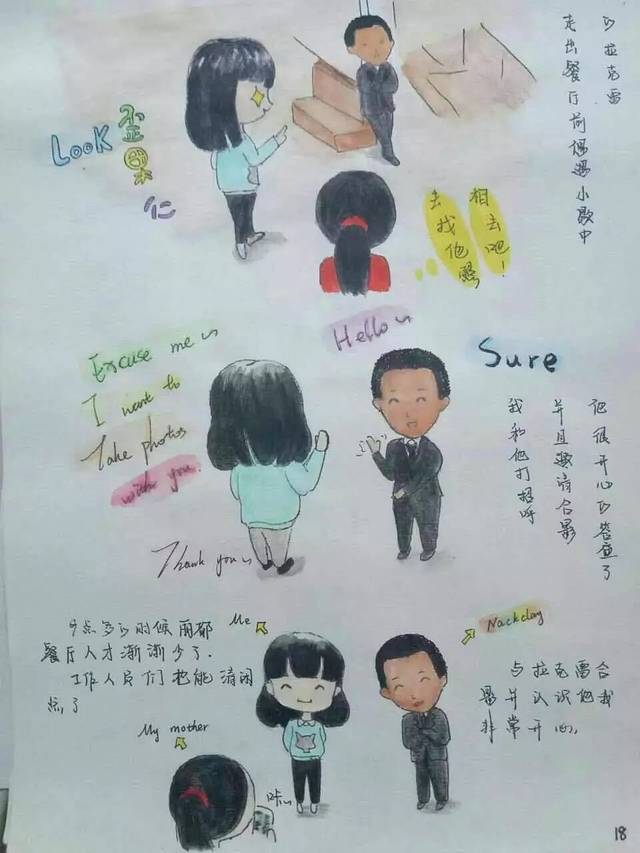 走出餐厅前偶遇小歇中
的拉克雷
Look 歪果仁
去找他照
相去吧!
Hello~
Excuse me~
I want to
Take photos
with you.
Sure
我和他打招呼
并且邀请合影
他很开心的答应了
Thank you~
9点多的时候丽都
餐厅人才渐渐少了.
工作人员们才能清闲
点了
Me
Nackclay
与拉克雷合
影并认识他我
非常开心.
My mother
咔~
18